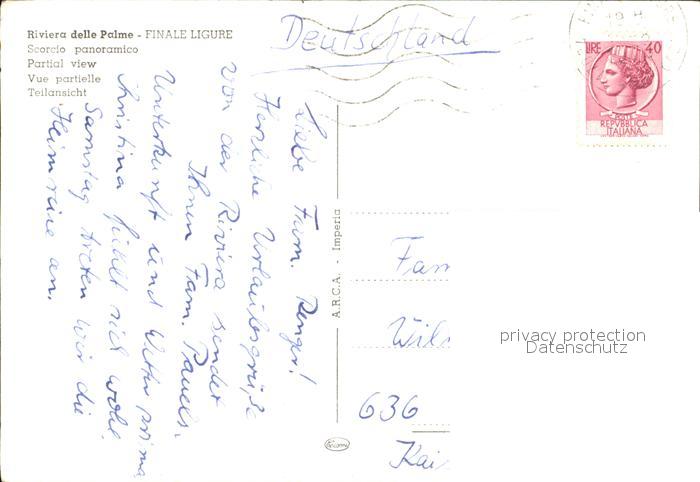 Riviera delle Palme - FINALE LIGURE
Scorcio panoramico
Partial view
Vue partielle
Teilansicht
Deutschland
LIRE 40
POSTE
REPVBBLICA
ITALIANA
Liebe Fam. Renger!
Herzliche Urlaubsgrüße
von der Riviera sendet
Ihnen Fam. Pauels.
Unterkunft und Wetter prima
Kristina fühlt sich wohl.
Samstag treten wir die
Heimreise an.
A.R.C.A. - Imperia
Fam
Wil
636
Kai
privacy protection
Datenschutz